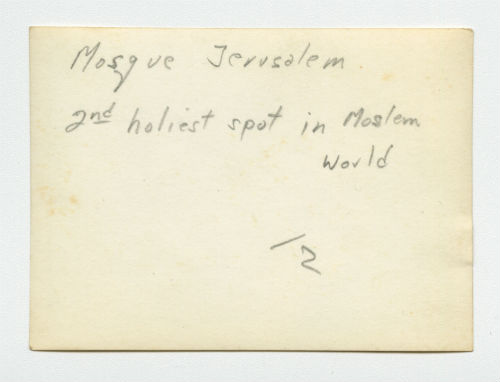 Mosque Jerusalem
2nd holiest spot in Moslem
World
12